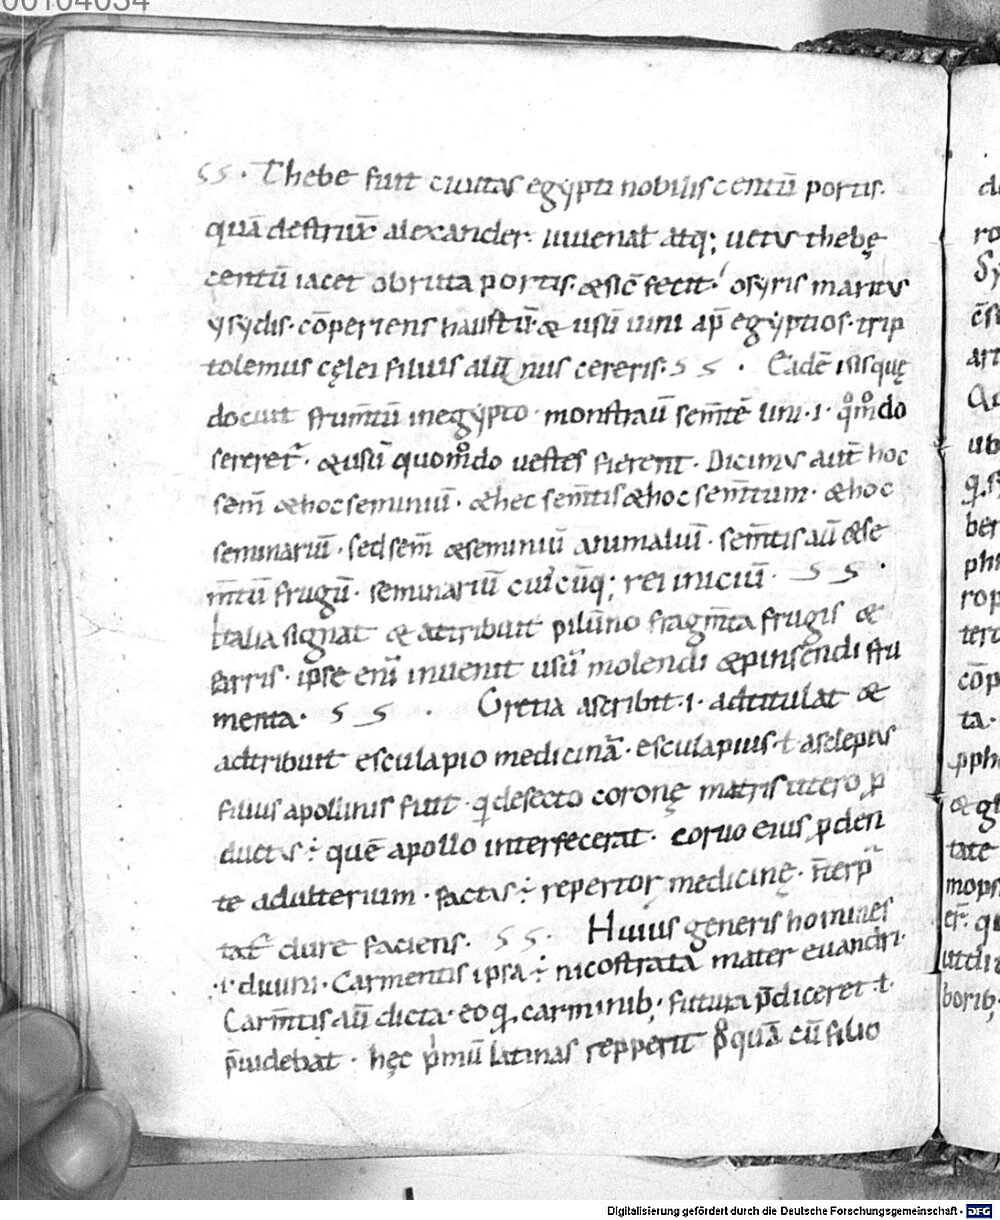 00104034
ss. Thebe fuit ciuitas egypti nobilis centū portis.
quā destrux̄ alexander. iuuenal atq; uetus thebę
centū iacet obruta portis. & sic̄ fecit. osyris maritus
ysydis. cōperiens haustū. & usū uini ap̄ egyptios. trip
tolemus cęlei filius alūnus cereris. ss. Eadē isisquę
docuit frum̄tū inegypto. monstrauᷓ sem̄tē lini .i. qͦm̊do
sereret᷑. & usū quom̊do uestes fierent. Dicimus aut̄ hoc
sem̄ & hoc seminiū. & hec sem̄tis & hoc sem̄tum. & hoc
seminariū. sed sem̄ & seminiū animaliū. sem̄tis aū & se
m̄tū frugū. seminariū cuiꝰcūq; rei iniciū. ss.
Italia signat & attribuit pilūno fragm̄ta frugis &
farris. ipse eni᷑ inuenit usū molendi & pinsendi fru
menta. ss. Gretia ascribit .i. adtitulat &
adtribuit esculapio medicinā. esculapius ƚ asclepius
filius apollinis fuit. ꝗ desecto coronę matris utero ꝓ
ductus ÷ quē apollo interfecerat. coruo eius ꝓden
te adulterium. factus ÷ repertor medicinę. n̄ terp̄
tat᷑ dure faciens. ss. Huius generis homines
.i. diuini. Carmentis ipsa ÷ nicostrata mater euandri.
Carm̄tis aū dicta. eo ꝗ carminib; futura p̄diceret ƚ
p̄uidebat. hęc pͥmū latinas repperit p̊quā cū filio
Digitalisierung gefördert durch die Deutsche Forschungsgemeinschaft - DFG